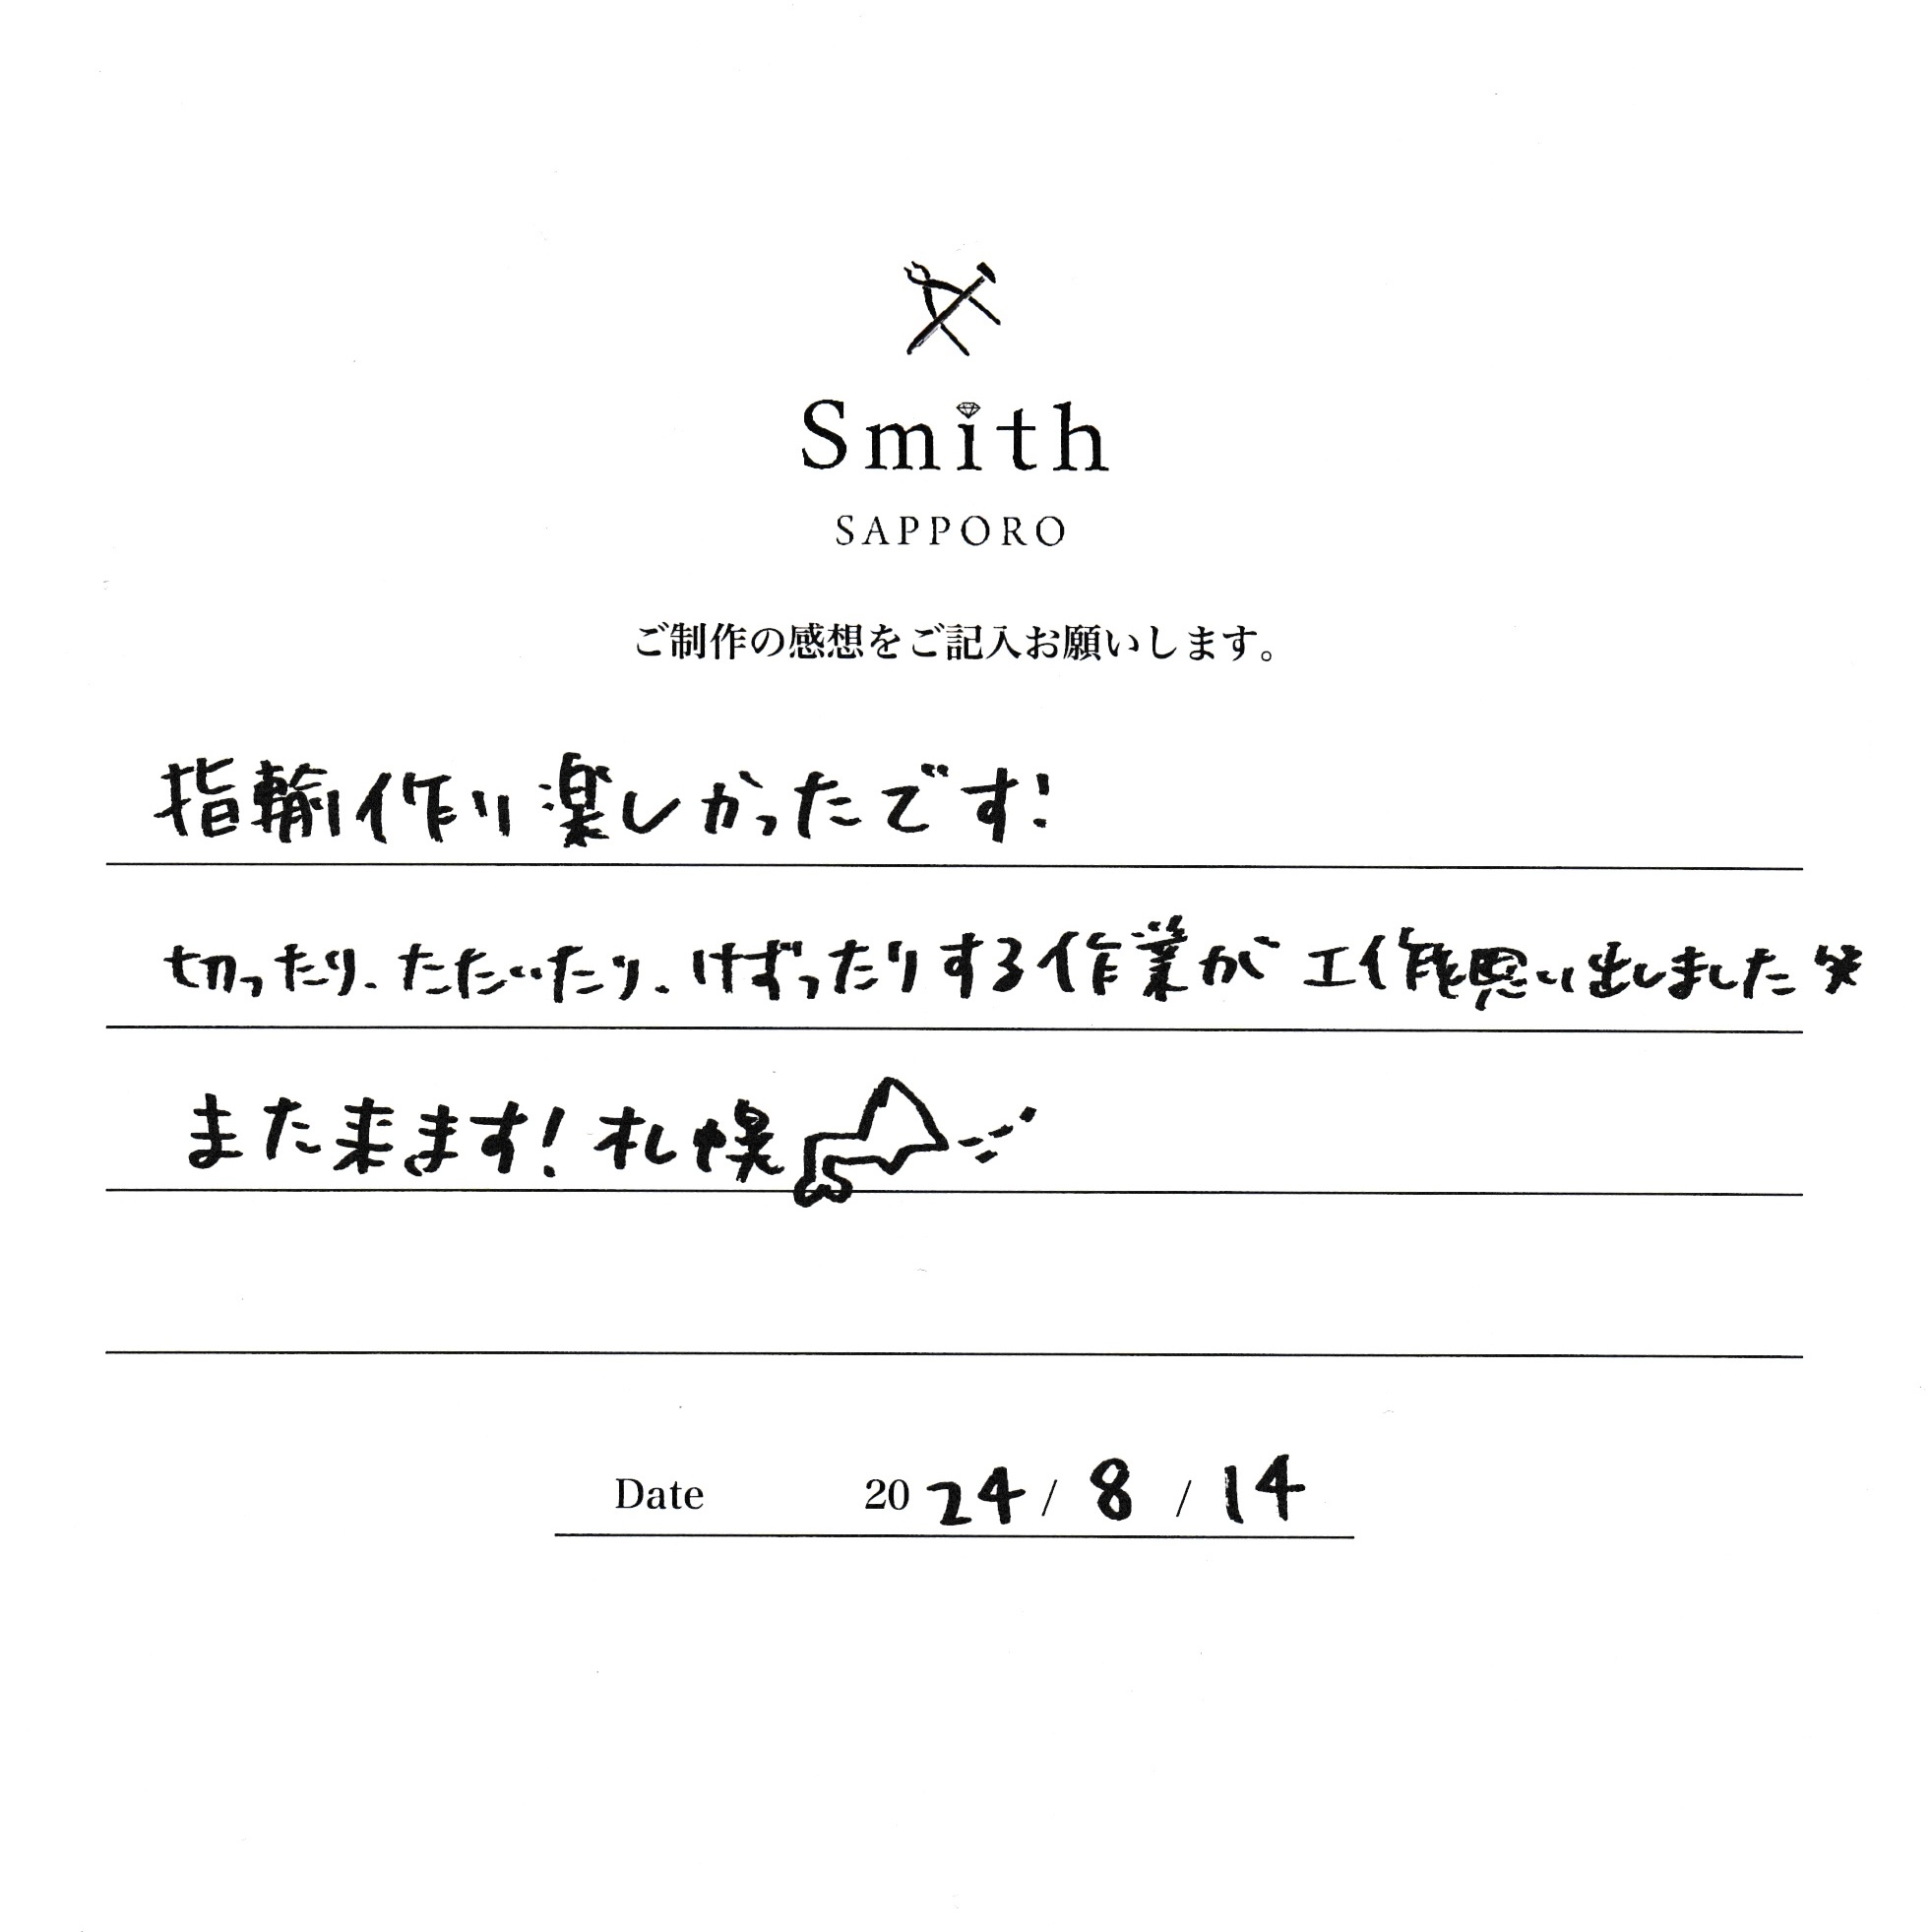 Smith
SAPPORO
ご制作の感想をご記入お願いします。
指輪作り楽しかったです!
切ったり、たたいたり、けずったりする作業が工作を思い出しました笑
また来ます!札幌
Date 2024/8/14